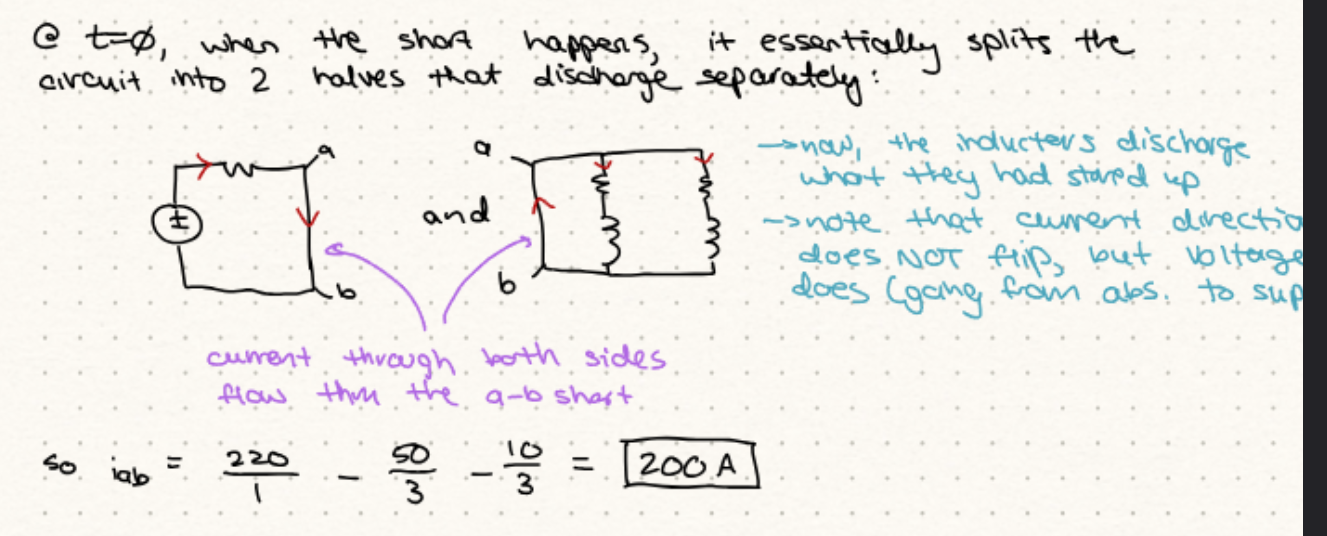 @ t=∅, when the short happens, it essentially splits the
circuit into 2 halves that discharge separately:
a
b
and
a
b
→now, the inductors discharge
what they had stored up
→note that current directio
does NOT flip, but voltage
does (going from abs. to sup
current through both sides
flow thru the a-b short
so iab = 220/1 - 50/3 - 10/3 = 200 A